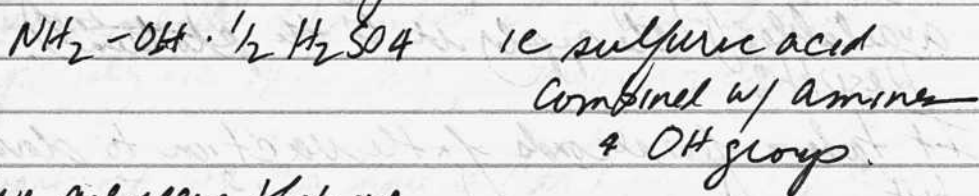 NH2-OH · 1/2 H2SO4 ie sulfuric acid
combined w/ amines
& OH group.